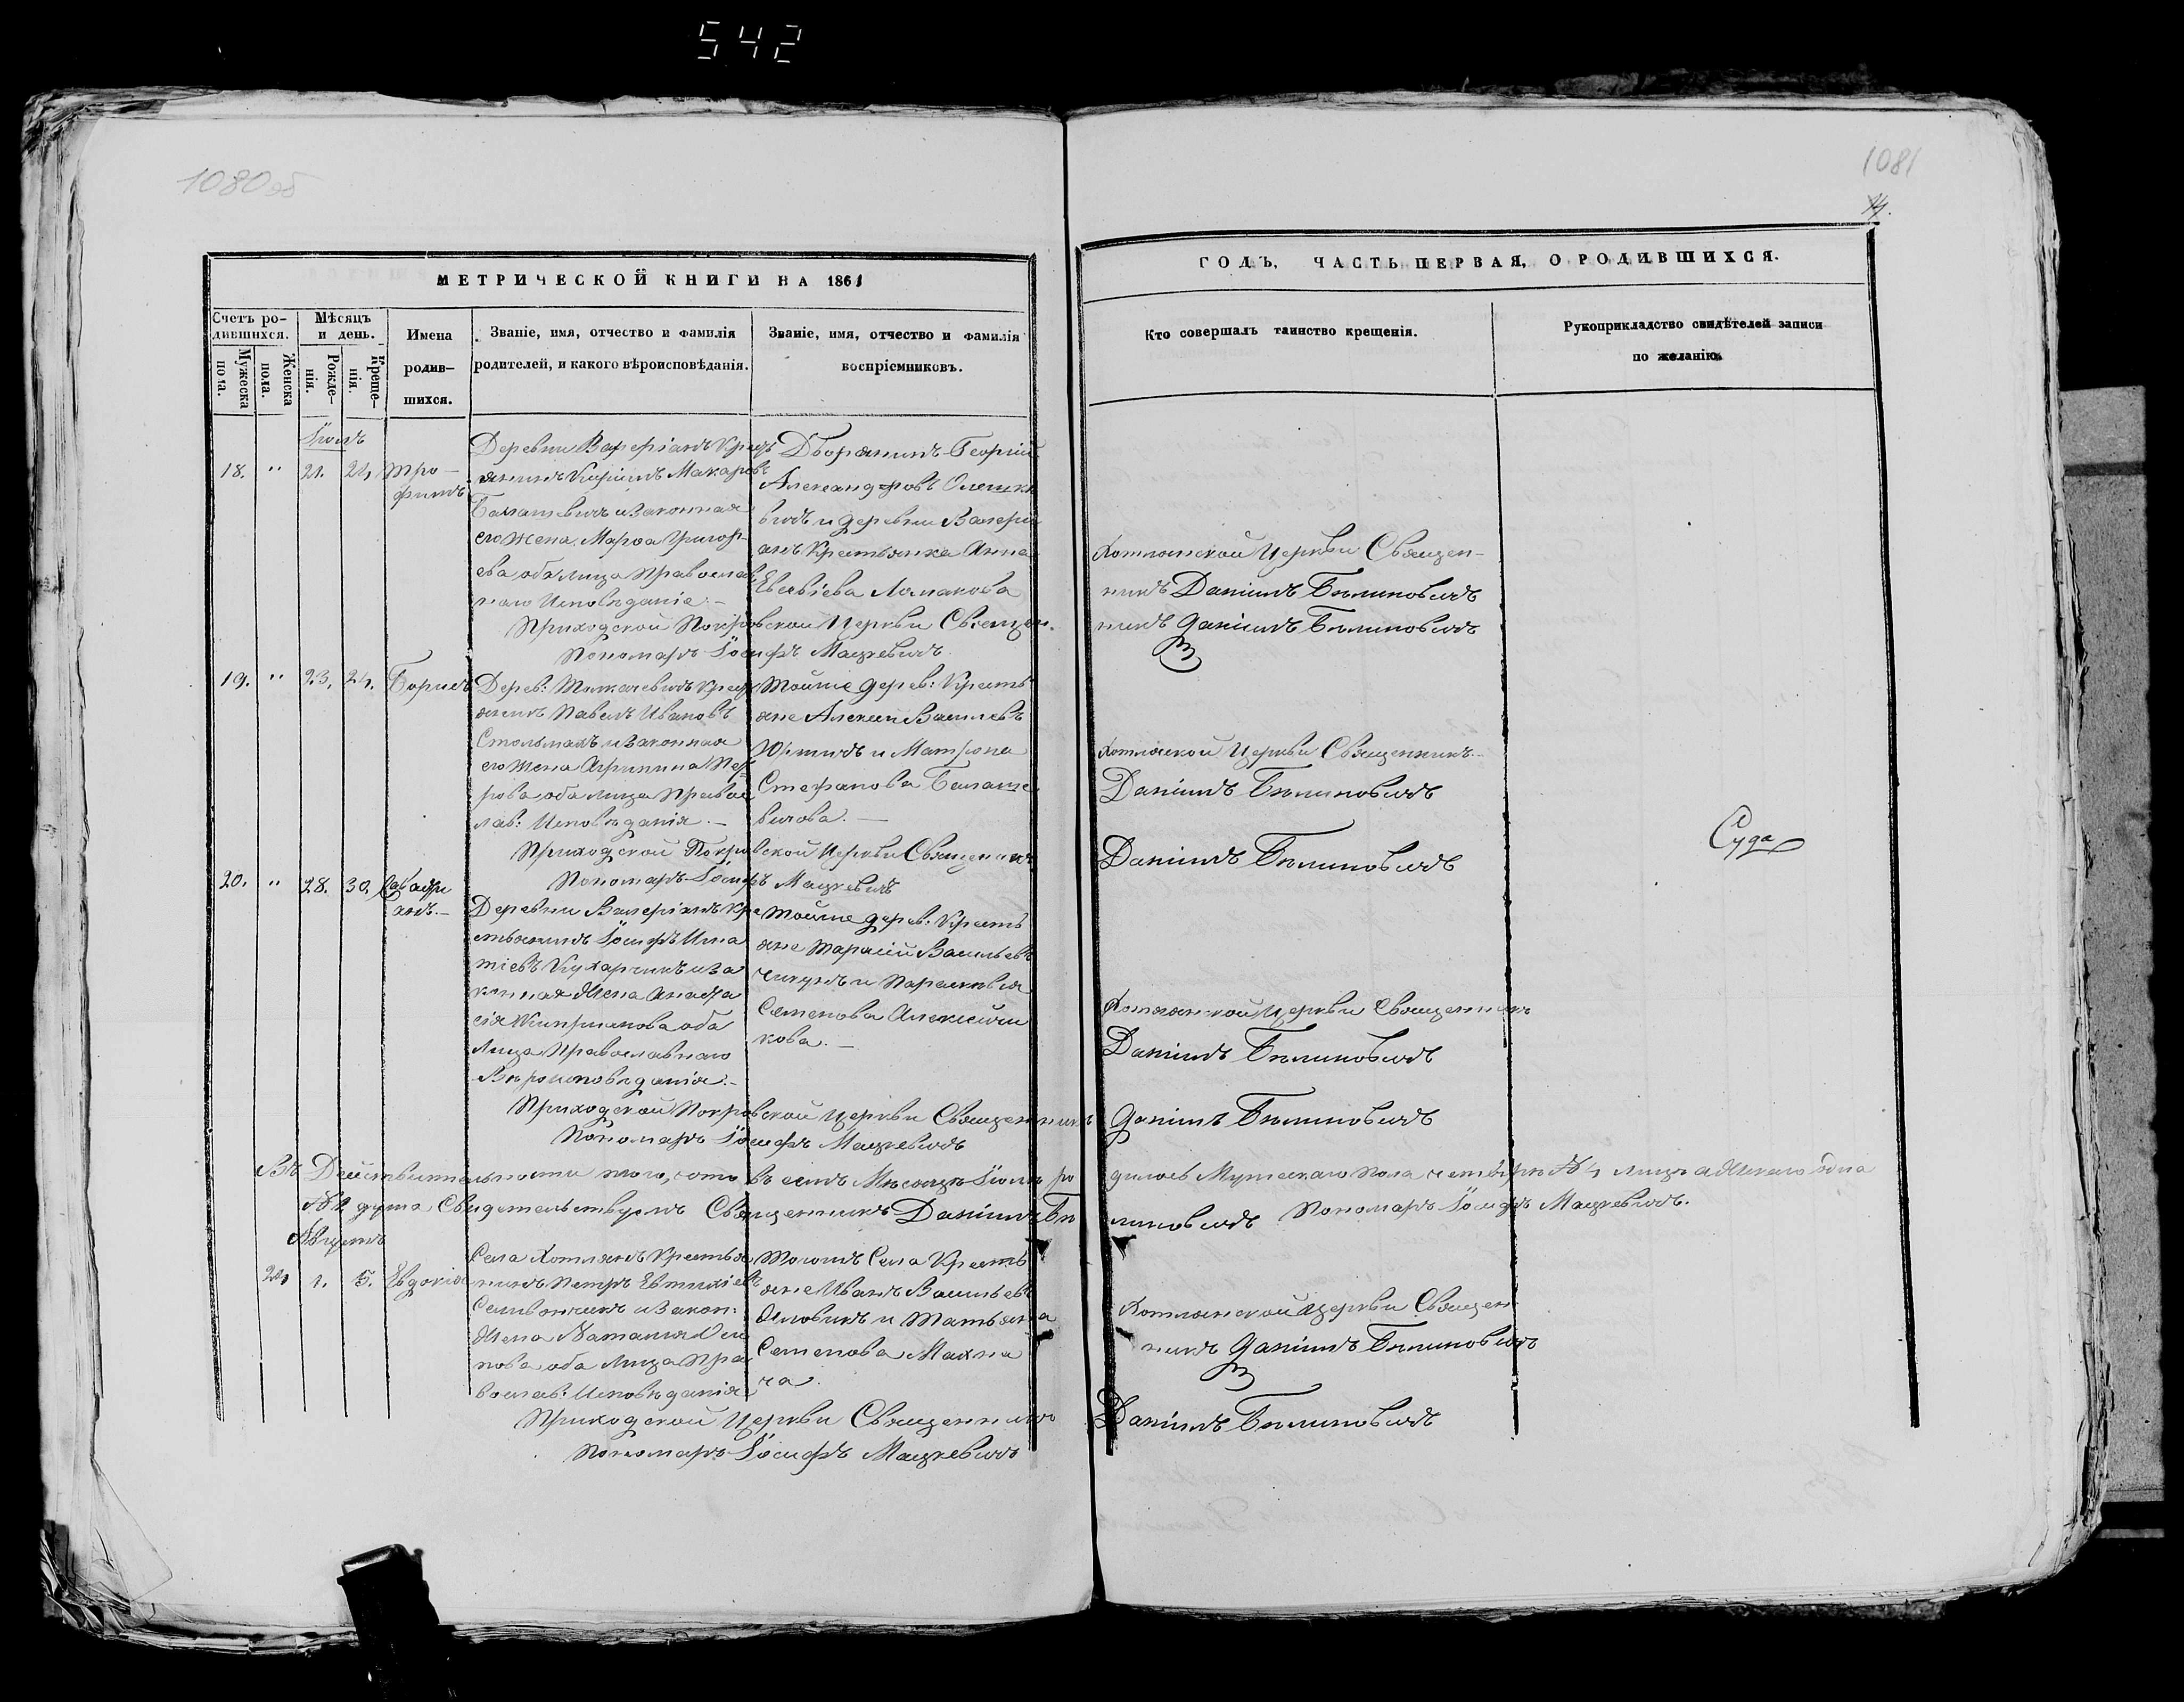 542
1080об
1081
14.
МЕТРИЧЕСКОЙ КНИГИ НА 1861
ГОДЪ, ЧАСТЬ ПЕРВАЯ, О РОДИВШИХСЯ.
Счетъ ро-
дившихся.
Мужеска
пола.
Женска
пола.
Мѣсяцъ
и день.
Рожде-
нія.
Креще-
нія.
Имена
родив-
шихся.
Званіе, имя, отчество и фамилія
родителей, и какого вѣроисповѣданія.
Званіе, имя, отчество и фамилія
воспріемниковъ.
Кто совершалъ таинство крещенія.
Рукоприкладство свидѣтелей записи
по желанію.
Іюль
18. " 21. 24, Тро-
фимъ
Деревни Валеріанъ Крест
янинъ Кирилъ Макаровъ
и законная
его жена Марфа Григорі-
ева, оба лица Православ
наго Исповѣданіе.-
Дворянинъ Георгій
Александровъ Олешке
вичъ и деревни Валері
анъ Крестьянка Анна
Евсевіева
Хотлянской Церкви Священ-
никъ Даніилъ Бѣлиновичъ
Приходской Покровской Церкви Священ.
никъ Даніилъ Бѣлиновичъ
Пономарь Іосифъ Мацкевичъ
19. " 23, 24. Борисъ
Дерев: Крест
янинъ Павелъ Ивановъ
Стольмахъ и законная
его жена Агрипина Пет
рова, оба лица Правос
лав: Исповѣданія.-
Тойже дерев: Кресть
яне Алексѣй Васильевъ
и Матрона
Стефанова
вичова.-
Хотлянской Церкви Священникъ
Даніилъ Бѣлиновичъ
Приходской Покровской Церкви Священникъ
Даніилъ Бѣлиновичъ
Пономарь Іосифъ Мацкевичъ
Суда
20. " 28. 30,
Деревни Валеріанъ Кре
стьянинъ Іосифъ Игна
тіевъ Кухарчикъ и за
конная жена Анаста
сія Кипріянова оба
лица Православнаго
Вѣроисповѣданія.-
Тойже дерев: Кресть
яне Тарасій Васильевъ
и Параскевія
Семенова Алексѣйчи
кова.-
Хотлянской Церкви Священникъ
Даніилъ Бѣлиновичъ
Приходской Покровской Церкви Священникъ
Даніилъ Бѣлиновичъ
Пономарь Іосифъ Мацкевичъ
Въ Действительности того, что въ семъ Мѣсяцѣ Іюлѣ ро
дилось Мужескаго пола четыре № 4 лица а Женскаго одна
№ 1 душа Свидетельствуемъ Священникъ Даніилъ Бѣ
линовичъ Пономарь Іосифъ Мацкевичъ.
Августъ
1. 5. Евдокія
Села Хотлянъ Крестья
нинъ Петръ Евтихіевъ
и Закон:
жена Наталія Оси
пова оба лица Пра
вослав: Исповѣданія
Тогожъ Села Кресть
яне Иванъ Васильевъ
и Татьяна
Семенова Махна
ча.
Хотлянской Церкви Священ
никъ Даніилъ Бѣлиновичъ
Приходской Церкви Священникъ
Даніилъ Бѣлиновичъ
Пономарь Іосифъ Мацкевичъ